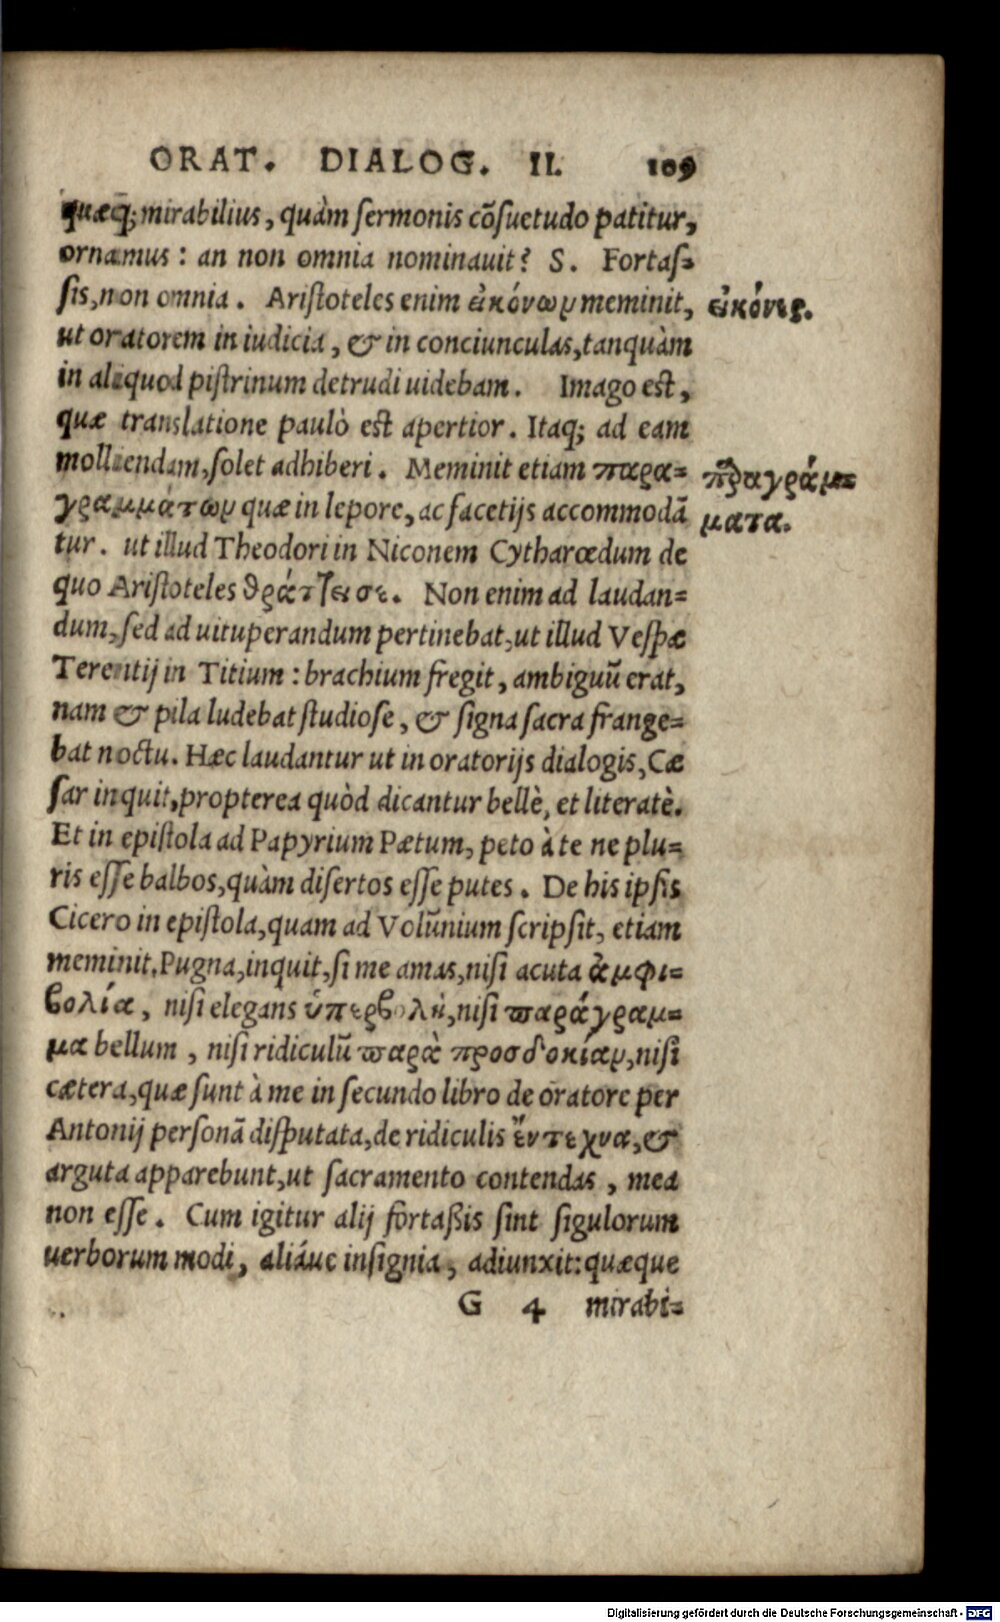 ORAT. DIALOG. II. 109
quæq; mirabilius, quàm sermonis cõsuetudo patitur,
ornamus: an non omnia nominauit? S. Fortas-
sis, non omnia. Aristoteles enim εἰκόνων meminit,
εἰκόνες.
ut oratorem in iudicia, & in conciunculas, tanquàm
in aliquod pistrinum detrudi uidebam. Imago est,
quæ translatione paulò est apertior. Itaq; ad eam
molliendam, solet adhiberi. Meminit etiam παρα-
παραγράμ-
γραμμάτων quæ in lepore, ac facetijs accommodã
ματα.
tur. ut illud Theodori in Niconem Cytharœdum de
quo Aristoteles θράττεισε. Non enim ad laudan-
dum, sed ad uituperandum pertinebat, ut illud Vespæ
Terentij in Titium: brachium fregit, ambiguũ erat,
nam & pila ludebat studiose, & signa sacra frange-
bat noctu. Hæc laudantur ut in oratorijs dialogis, Cæ
sar inquit, propterea quòd dicantur bellè, et literatè.
Et in epistola ad Papyrium Pætum, peto à te ne plu-
ris esse balbos, quàm disertos esse putes. De his ipsis
Cicero in epistola, quam ad Volũnium scripsit, etiam
meminit. Pugna, inquit, si me amas, nisi acuta ἀμφι-
βολία, nisi elegans ὑπερβολὴ, nisi παράγραμ-
μα bellum, nisi ridiculũ παρὰ προσδοκίαν, nisi
cætera, quæ sunt à me in secundo libro de oratore per
Antonij personã disputata, de ridiculis ἔντεχνα, &
arguta apparebunt, ut sacramento contendas, mea
non esse. Cum igitur alij fortaßis sint sigulorum
uerborum modi, aliáue insignia, adiunxit: quæque
G 4 mirabi-
Digitalisierung gefördert durch die Deutsche Forschungsgemeinschaft - DFG